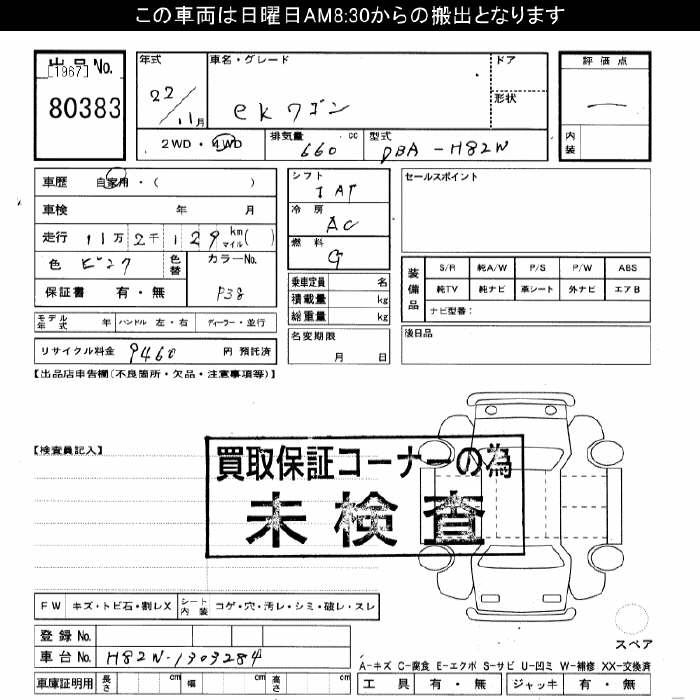 この車両は日曜日AM8:30からの搬出となります
出品No.
[1967]
80383
年式
22/11月
車名・グレード
ekワゴン
ドア
形状
評価点
内装
2WD・4WD
排気量 660 cc
型式 DBA-H82W
車歴 自家用・( )
車検 年 月
走行 11万2千129km マイル( )
色 ピンク
色替
カラーNo.
P38
保証書 有・無
シフト
IAT
冷房
AC
燃料
G
乗車定員 名
積載量 kg
総重量 kg
セールスポイント
装備品
S/R 純A/W P/S P/W ABS
純TV 純ナビ 革シート 外ナビ エアB
ナビ型番:
モデル年式 年 ハンドル 左・右 ディーラー・並行
名変期限
月 日
後日品
リサイクル料金 9460 円 預託済
【出品店申告欄(不良箇所・欠品・注意事項等)】
【検査員記入】
買取保証コーナーの為
未検査
FW キズ・トビ石・割レX シート内装 コゲ・穴・汚レ・シミ・破レ・スレ
スペア
登録No.
車台No. H82W-1303284
A-キズ C-腐食 E-エクボ S-サビ U-凹ミ W-補修 XX-交換済
車庫証明用 長さ cm 幅 cm 高さ cm
工具 有・無 ジャッキ 有・無